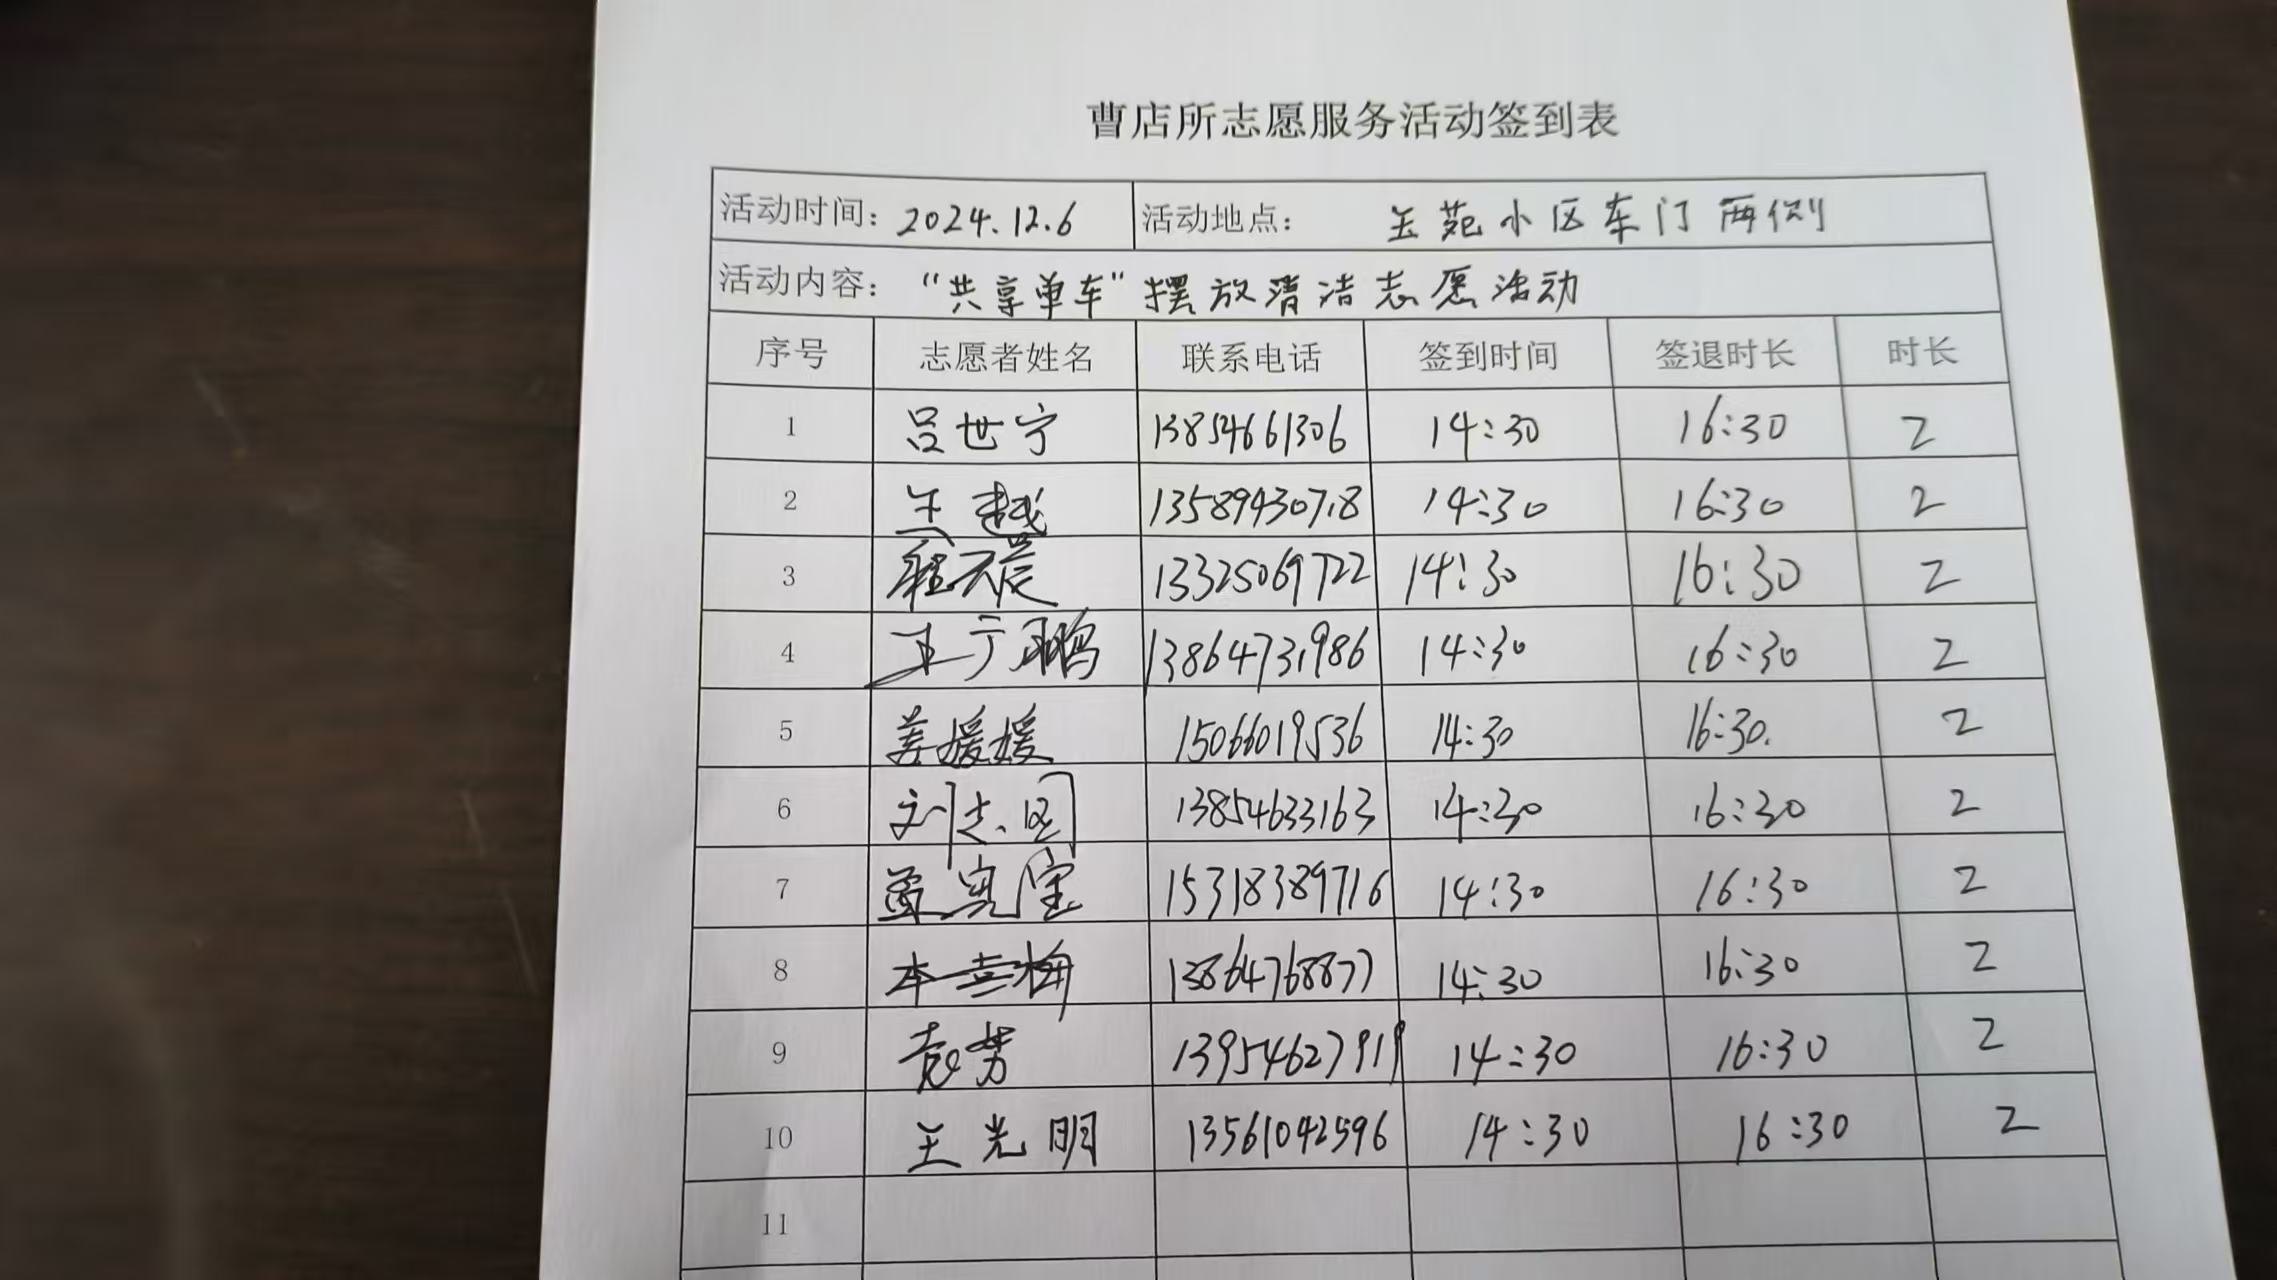 曹店所志愿服务活动签到表
活动时间：2024.12.6 活动地点： 玉苑小区车门两侧
活动内容： “共享单车”摆放清洁志愿活动
序号 志愿者姓名 联系电话 签到时间 签退时长 时长
1 吕世宁 13854661306 14:30 16:30 2
2 王越 13589430718 14:30 16:30 2
3 程天晨 13325069722 14:30 16:30 2
4 王广鹏 13864731986 14:30 16:30 2
5 姜媛媛 15066019536 14:30 16:30. 2
6 刘志国 13854633163 14:30 16:30 2
7 15318389716 14:30 16:30 2
8 13864768877 14:30 16:30 2
9 袁芳 13954627919 14:30 16:30 2
10 王光明 13561042596 14:30 16:30 2
11